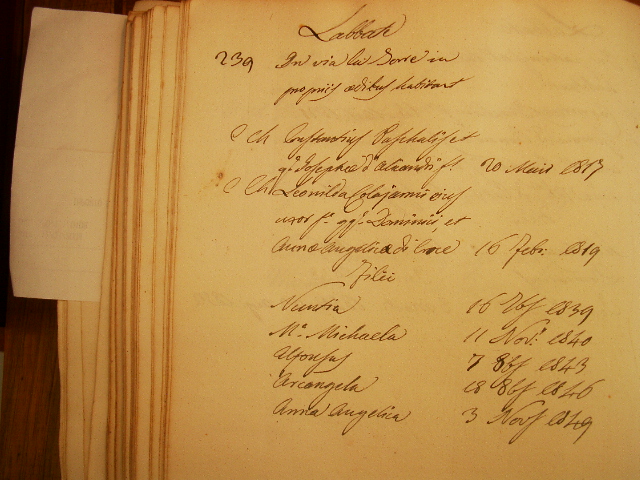 Labbate
239 In via la Torre in
propriis ædibus habitant
C Ch Constantius Paschalis et
q.m Josephæ d'Alexandi f.s 20 Maii 1817
C Ch Leonilda Colajanni ejus
uxor f.a qq.m Dominici, et
Annæ Angelicæ di Croce 16 Febr: 1819
Filii
Nuntia 16 7bris 1839
M.a Michaela 11 Nov.s 1840
Alfonsus 7 8bris 1843
Arcangela 18 8bris 1846
Anna Angelica 3 Novs 1849